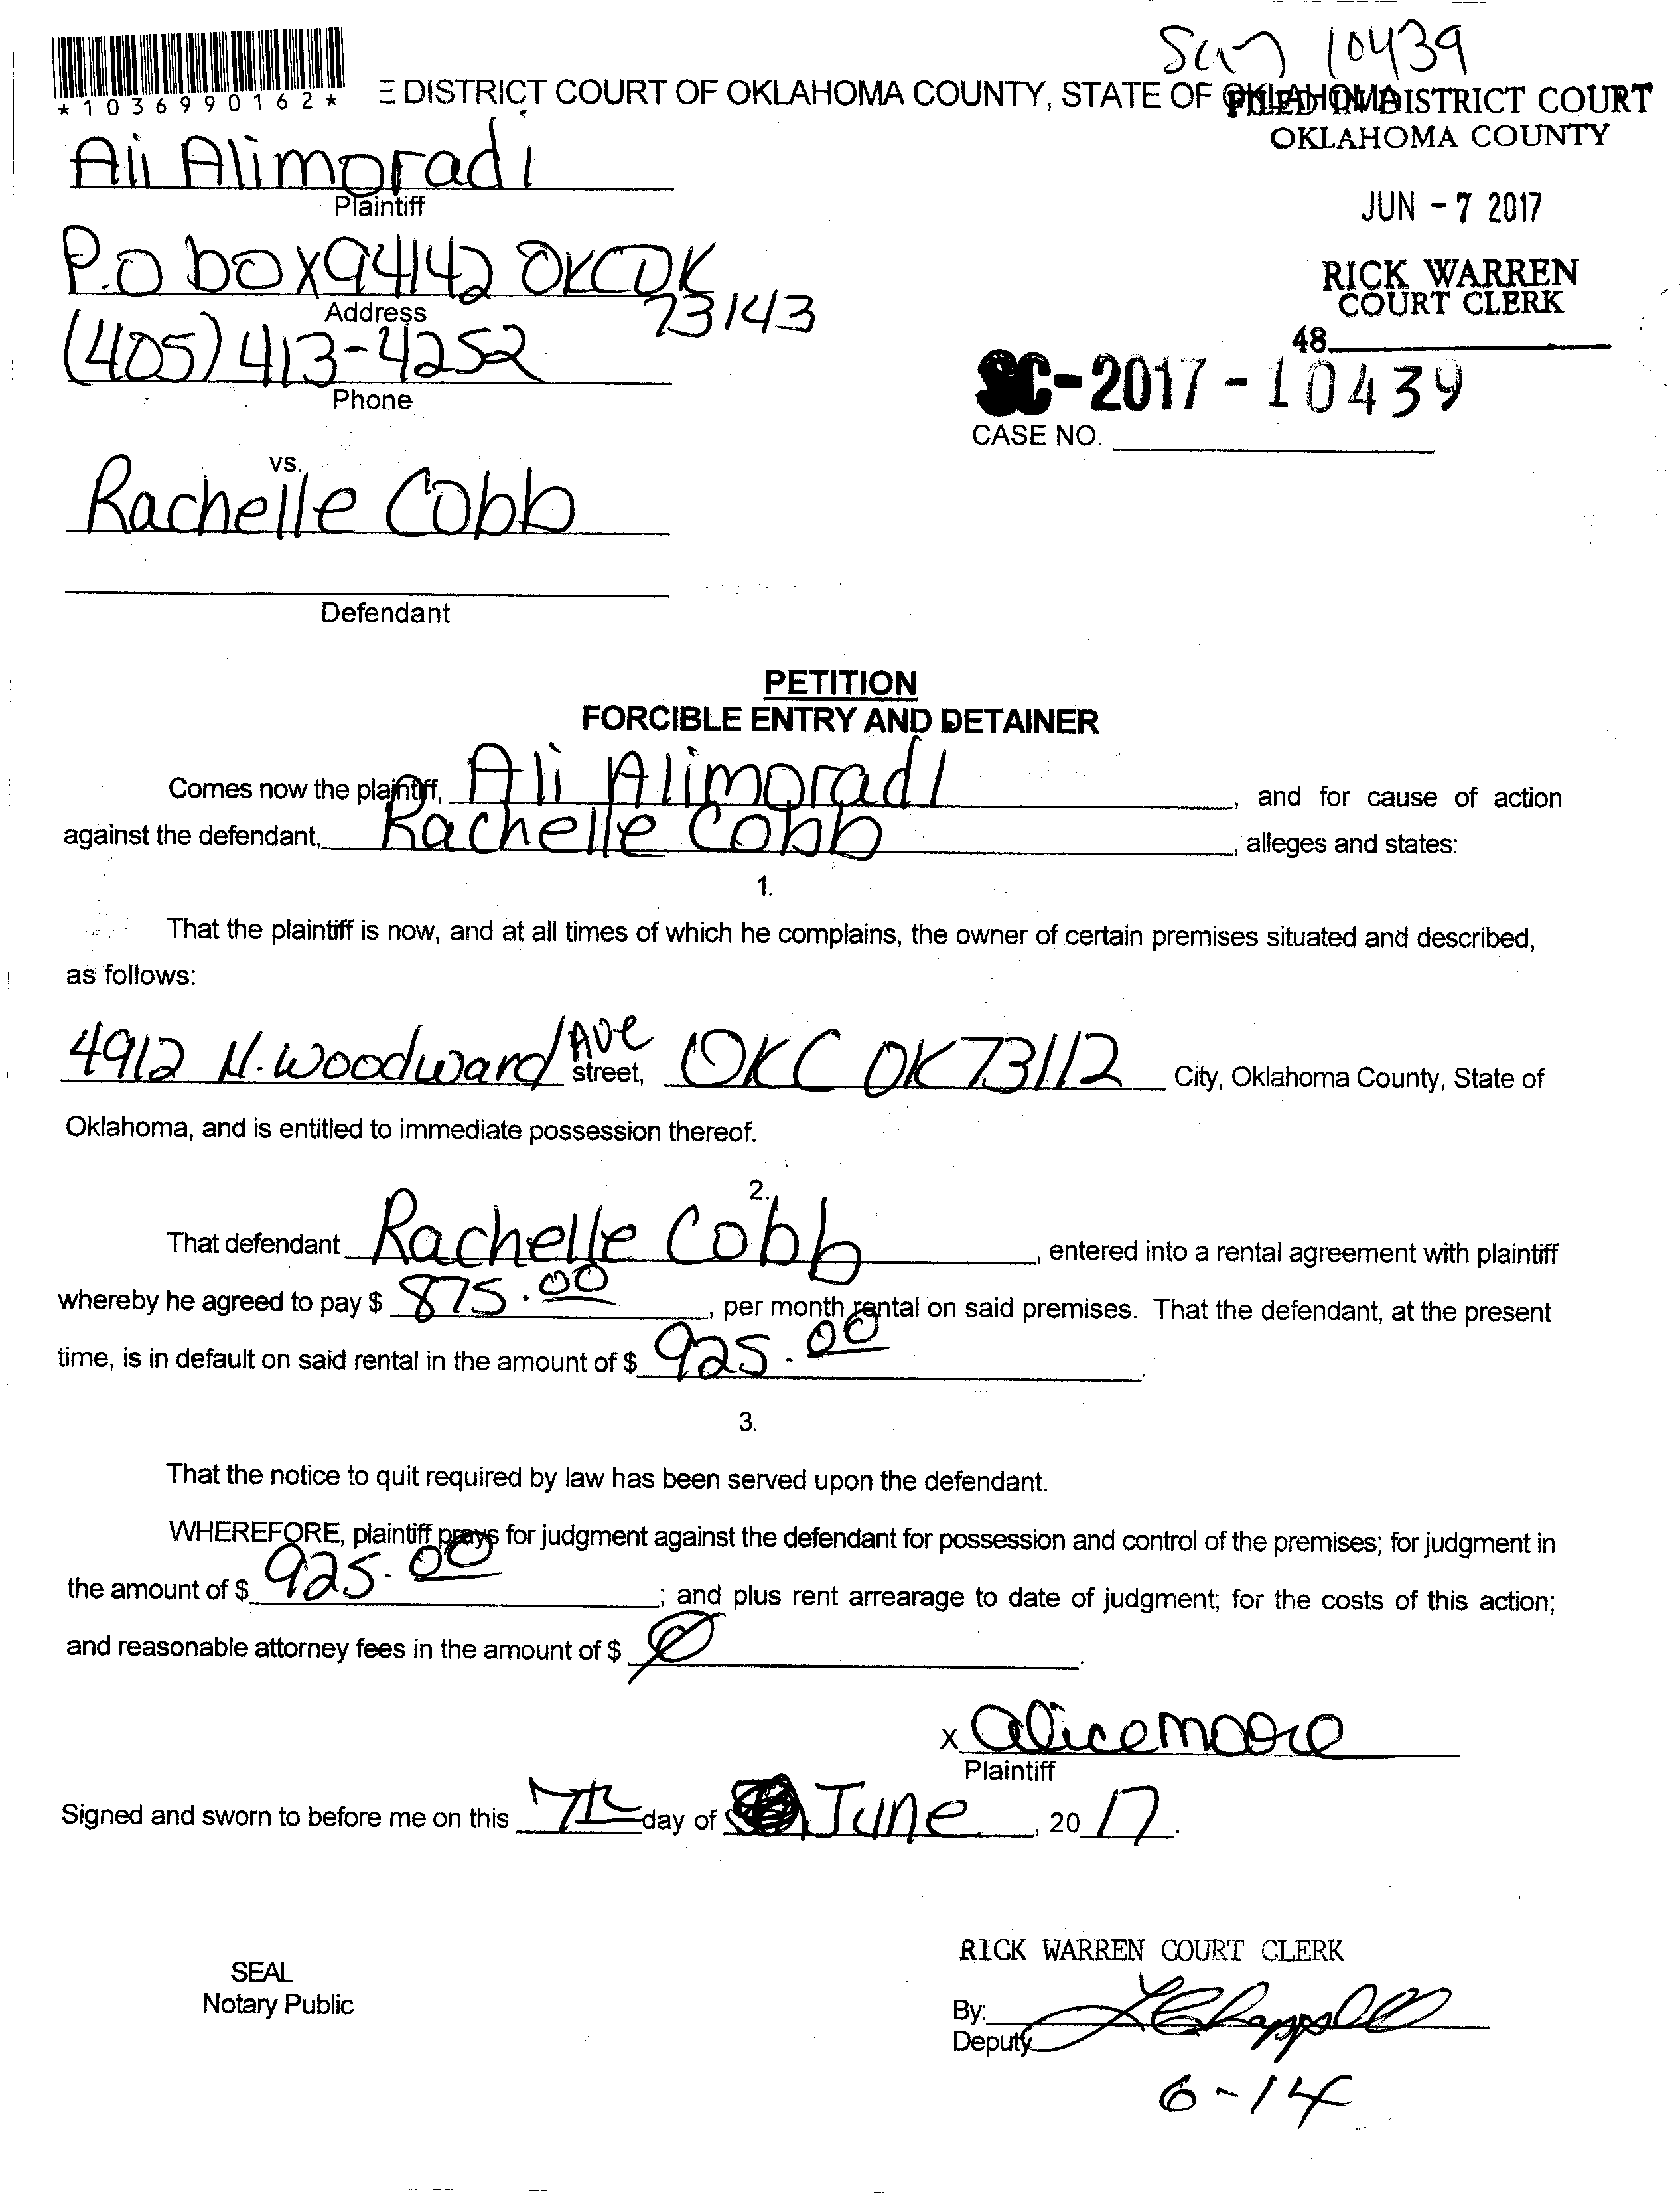 Sm 10439
*1036990162*
E DISTRICT COURT OF OKLAHOMA COUNTY, STATE OF OKLAHOMA
FILED IN DISTRICT COURT
OKLAHOMA COUNTY
Ali Alimoradi
Plaintiff
JUN - 7 2017
P.O box 94142 OKC OK
73143
Address
RICK WARREN
COURT CLERK
(405) 413-4252
48
Phone
SC-2017-10439
CASE NO.
vs.
Rachelle Cobb
Defendant
PETITION
FORCIBLE ENTRY AND DETAINER
Comes now the plaintiff, Ali Alimoradi, and for cause of action
against the defendant, Rachelle Cobb, alleges and states:
1.
That the plaintiff is now, and at all times of which he complains, the owner of certain premises situated and described,
as follows:
4912 N. Woodward Ave street, OKC OK 73112 City, Oklahoma County, State of
Oklahoma, and is entitled to immediate possession thereof.
2.
That defendant Rachelle Cobb, entered into a rental agreement with plaintiff
whereby he agreed to pay $ 875.00, per month rental on said premises. That the defendant, at the present
time, is in default on said rental in the amount of $ 925.00.
3.
That the notice to quit required by law has been served upon the defendant.
WHEREFORE, plaintiff prays for judgment against the defendant for possession and control of the premises; for judgment in
the amount of $ 925.00; and plus rent arrearage to date of judgment; for the costs of this action;
and reasonable attorney fees in the amount of $ Ø.
x alice moore
Plaintiff
Signed and sworn to before me on this 7th day of June, 20 17.
RICK WARREN COURT CLERK
SEAL
Notary Public
By: L Chappell
Deputy
6-14